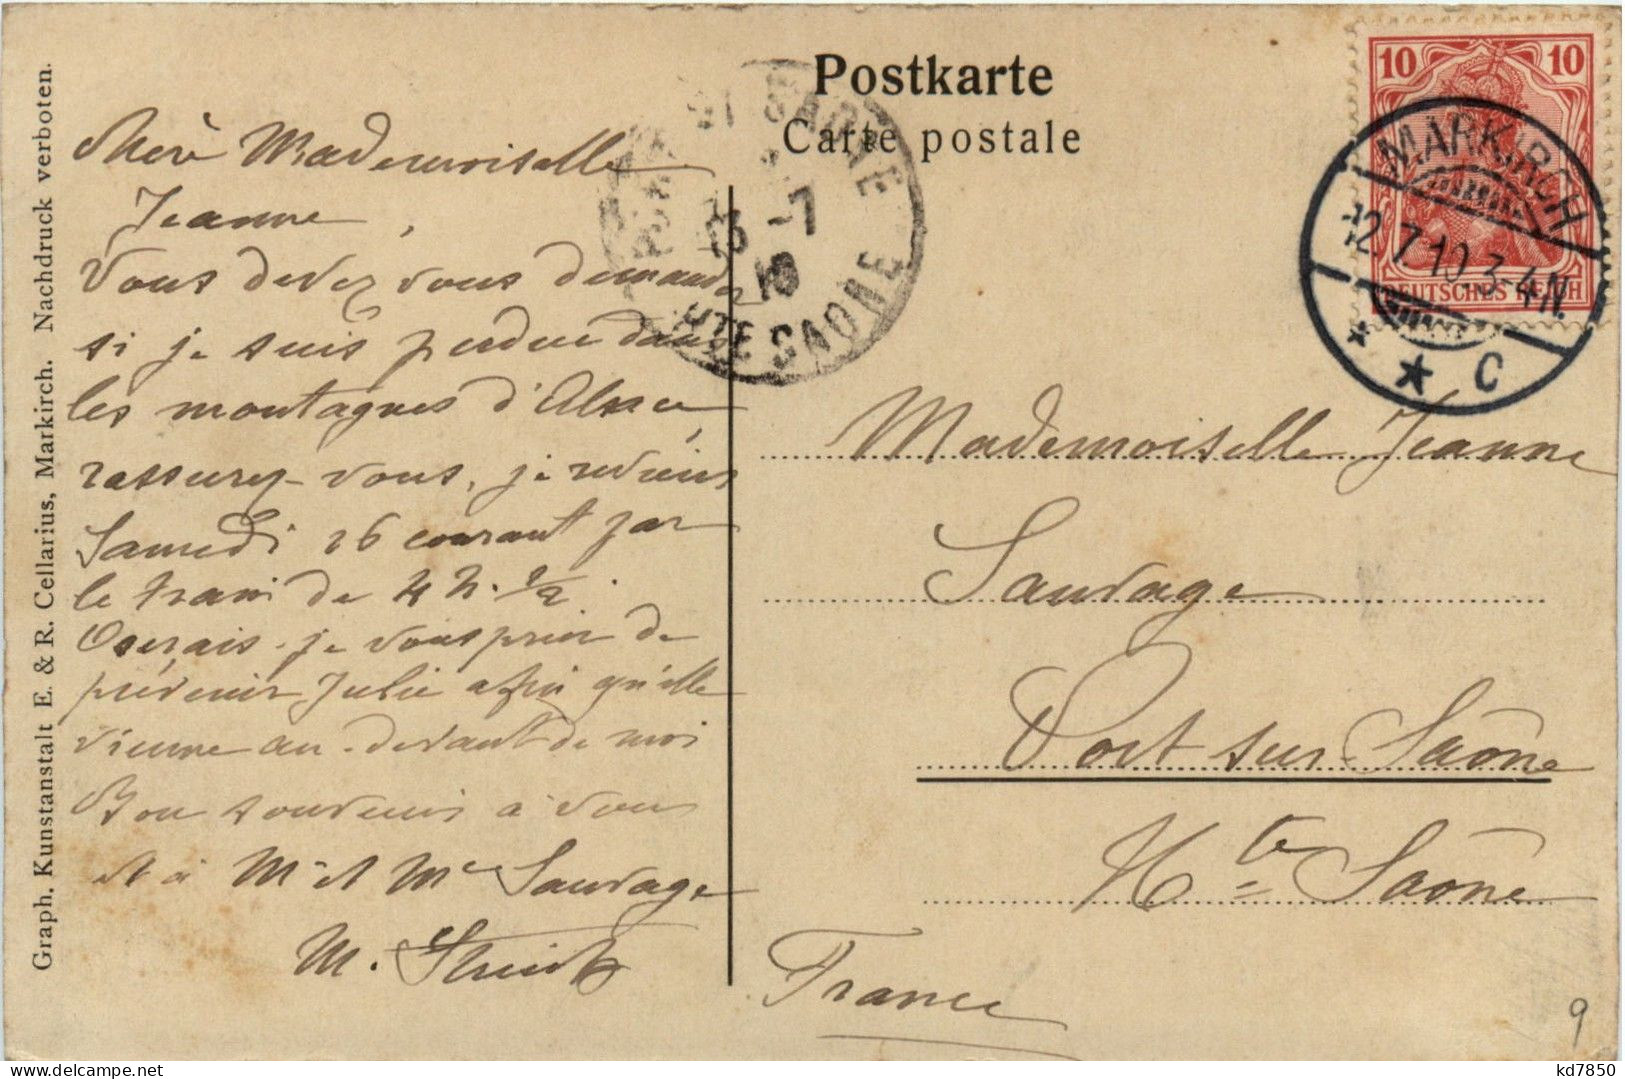 Postkarte
Carte postale
Graph. Kunstanstalt E. & R. Cellarius, Markirch. Nachdruck verboten.
Chère Mademoiselle
Jeanne,
Vous devez vous demander
si je suis perdue dans
les montagnes d'Alsace,
rassurez-vous, je reviens
Samedi 16 courant par
le train de 4 h. 1/2.
je vous prier de
prévenir Julie afin qu'elle
vienne au-devant de moi
Bon souvenir à vous
et à Mr et Me Sauvage
M.
10 10
DEUTSCHES REICH
MARKIRCH
12.7.10.3-4N.
* * C
PORT S/ SAONE
13 -7
10
HTE SAONE
Mademoiselle Jeanne
Sauvage
Port sur Saône
Hte Saône
France
9
kd7850